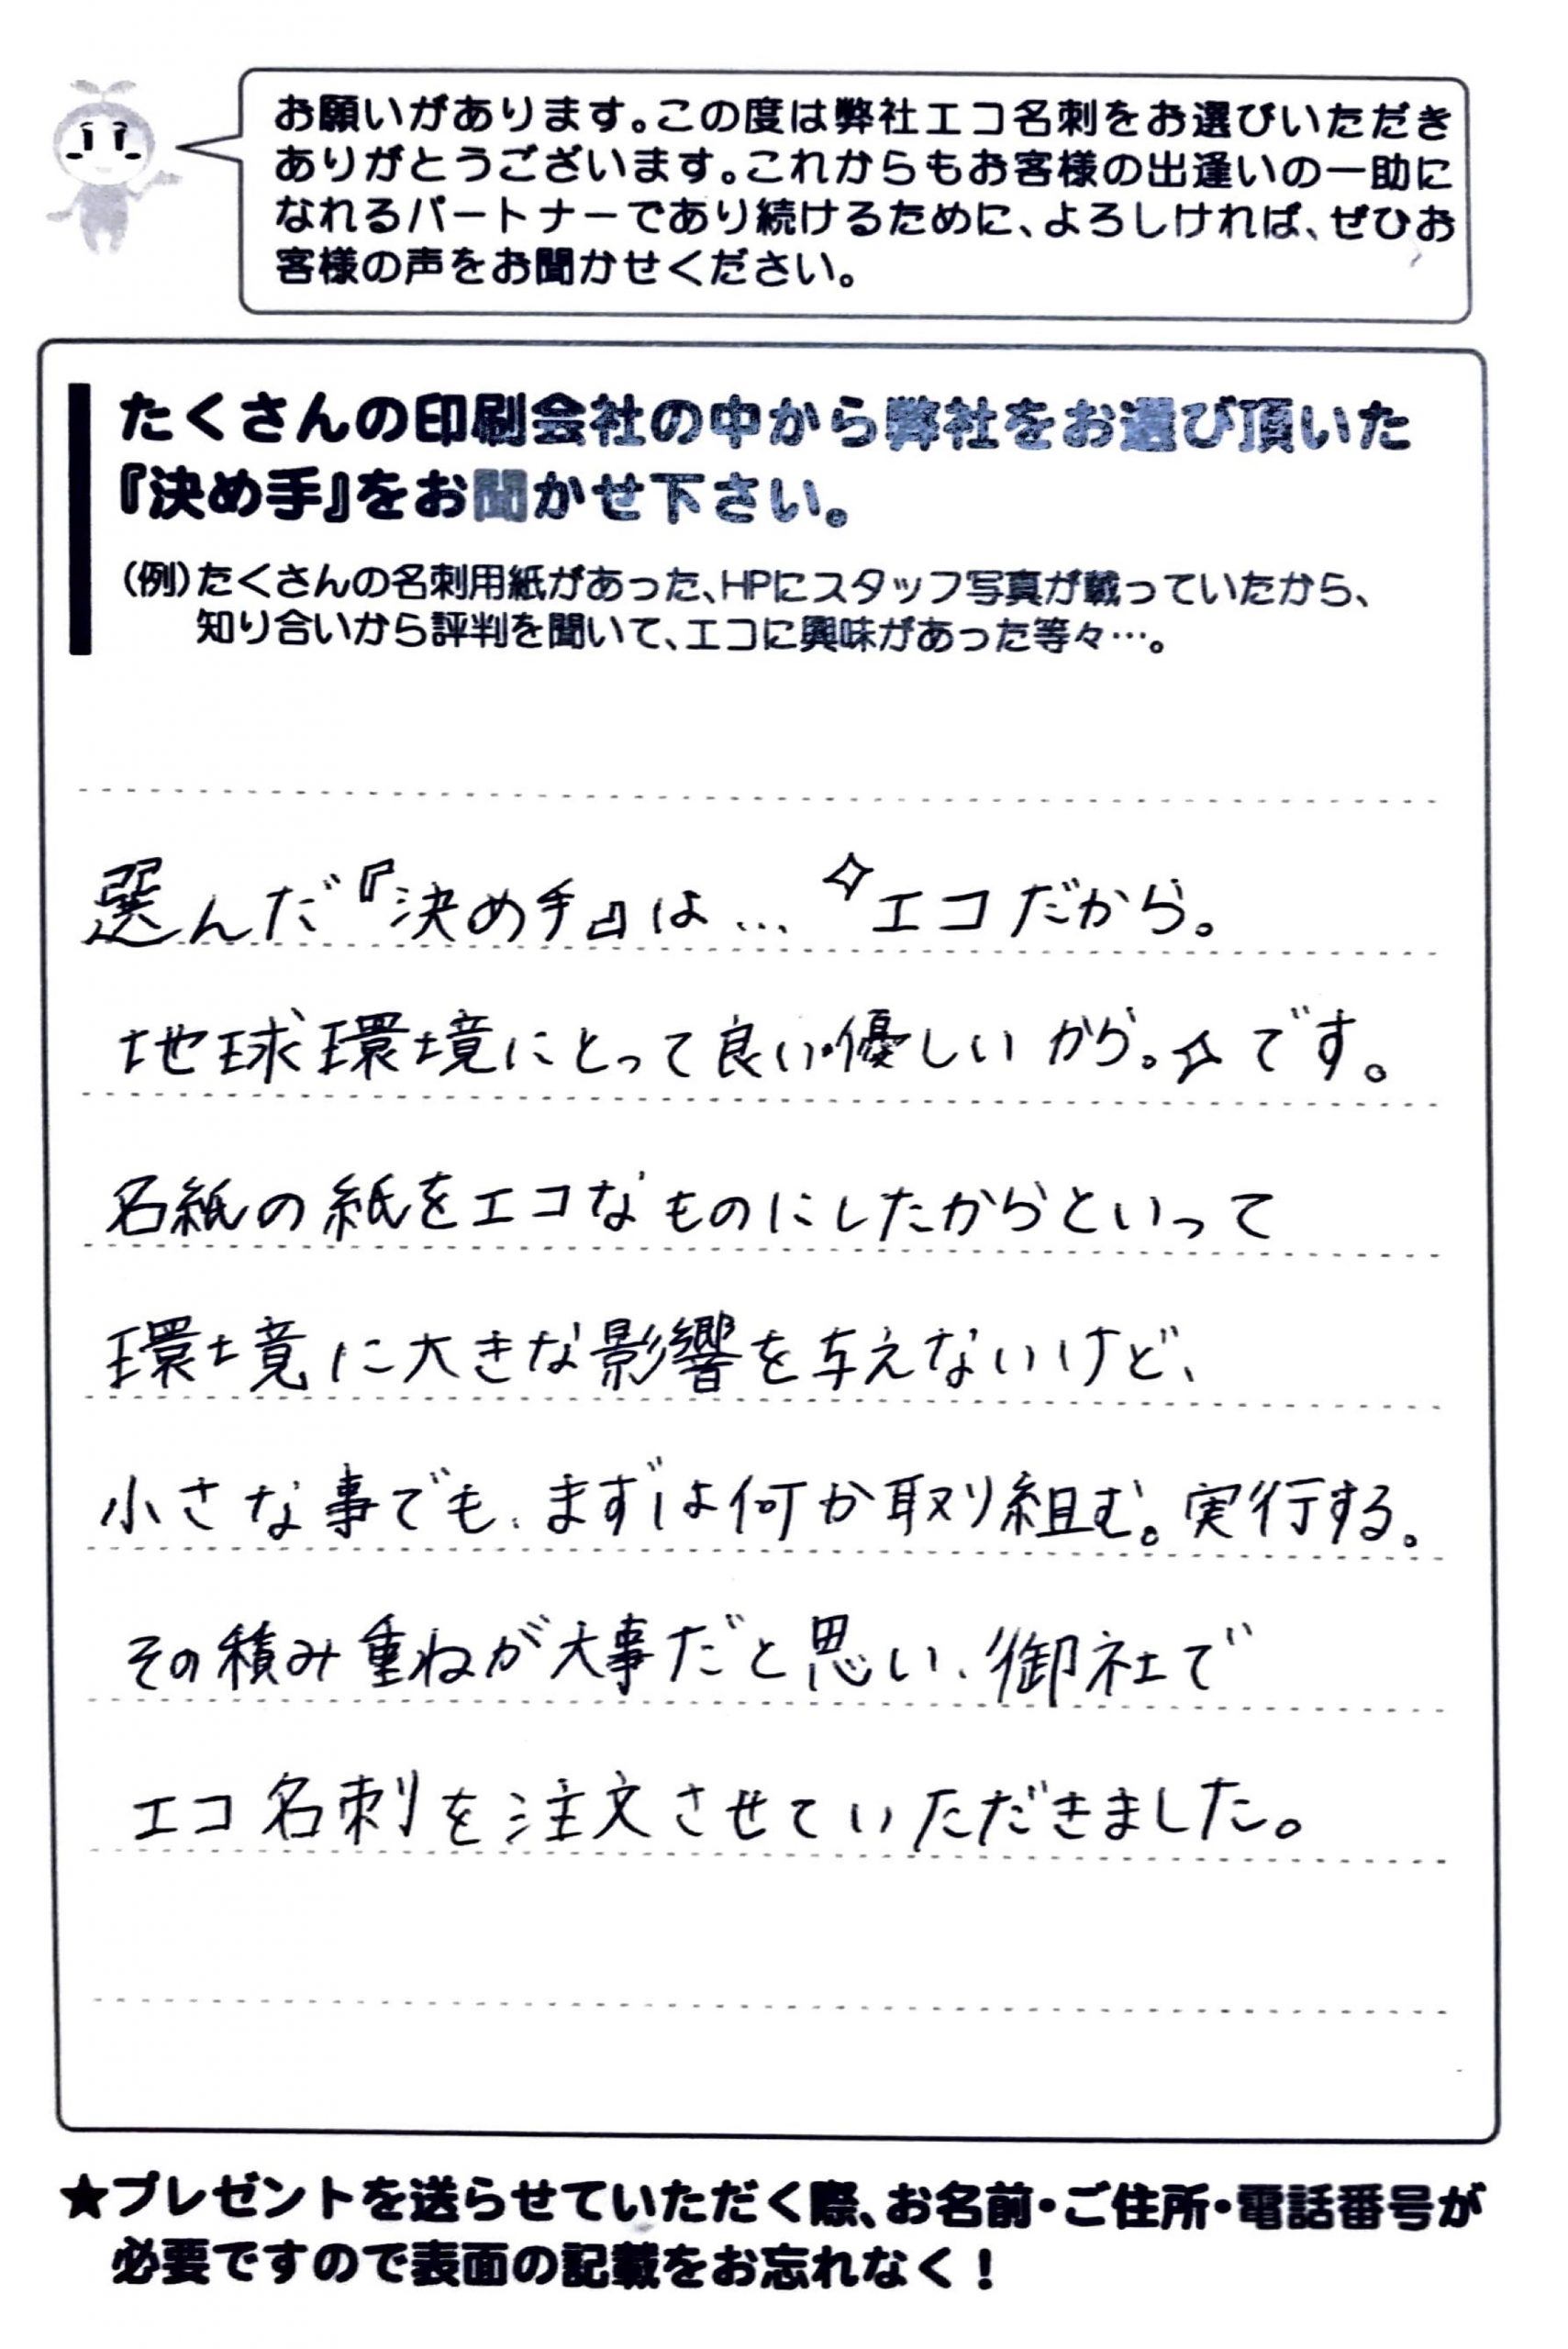 お願いがあります。この度は弊社エコ名刺をお選びいただき
ありがとうございます。これからもお客様の出逢いの一助に
なれるパートナーであり続けるために、よろしければ、ぜひお
客様の声をお聞かせください。
たくさんの印刷会社の中から弊社をお選び頂いた
『決め手』をお聞かせ下さい。
(例)たくさんの名刺用紙があった、HPにスタッフ写真が載っていたから、
知り合いから評判を聞いて、エコに興味があった等々…。
選んだ『決め手』は… ✧エコだから。
地球環境にとって良い・優しいから。✧です。
名紙の紙をエコなものにしたからといって
環境に大きな影響を与えないけど、
小さな事でも、まずは何か取り組む。実行する。
その積み重ねが大事だと思い、御社で
エコ名刺を注文させていただきました。
★プレゼントを送らせていただく際、お名前・ご住所・電話番号が
必要ですので表面の記載をお忘れなく!